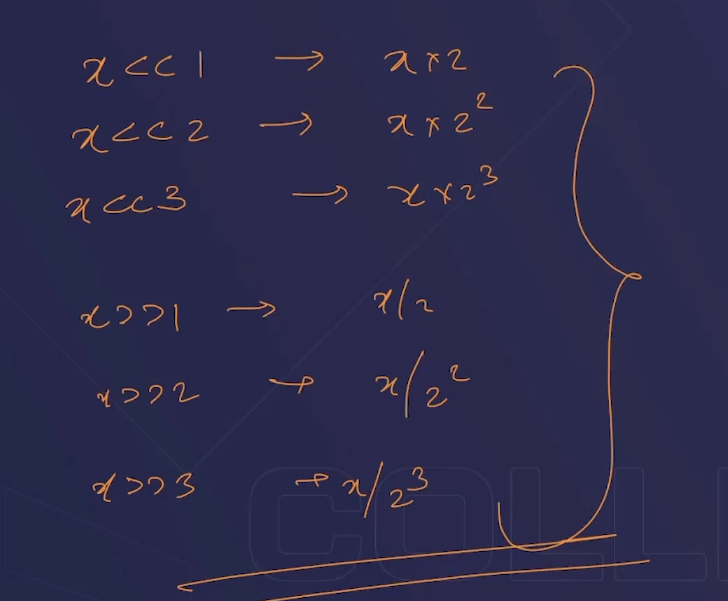 x<<1 → x×2
x<<2 → x×2²
x<<3 → x×2³
x>>1 → x/2
x>>2 → x/2²
x>>3 → x/2³
COLL